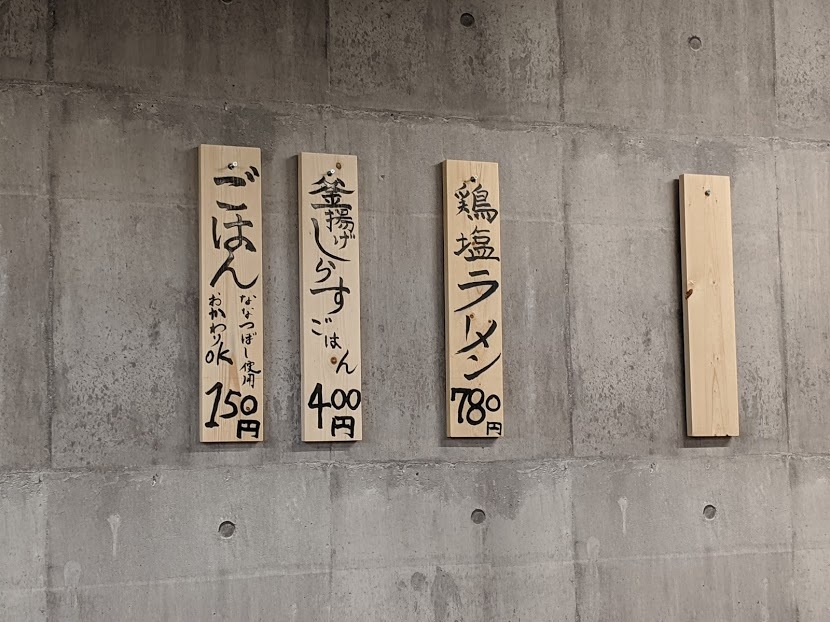 ごはん
ななつぼし使用
おかわりOK
150円
釜揚げしらすごはん
400円
鶏塩ラーメン
780円